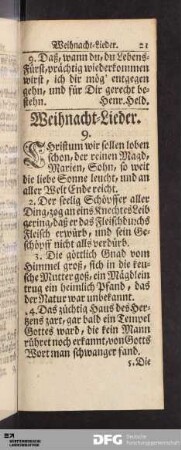 Weihnacht-Lieder. 21
9. Daß, wann du, du Lebens-
Fürst, prächtig wiederkommen
wirst, ich dir mög' entgegen
gehn, und für Dir gerecht be-
stehn. Henr. Held.
Weihnacht-Lieder.
9.
Christum wir sollen loben
schon, der reinen Magd,
Marien, Sohn, so weit
die liebe Sonne leucht, und an
aller Welt Ende reicht.
2. Der seelig Schöpffer aller
Ding, zog an eins Knechts Leib
gering, daß er das Fleisch durchs
Fleisch erwürb, und sein Ge-
schöpff nicht alls verdürb.
3. Die göttlich Gnad vom
Himmel groß, sich in die keu-
sche Mutter goß, ein Mägdlein
trug ein heimlich Pfand, das
der Natur war unbekannt.
4. Das züchtig Haus des Her-
tzens zart, gar bald ein Tempel
Gottes ward, die kein Mann
rühret noch erkannt, von Gotts
Wort man schwanger fand.
5. Die
DFG Deutsche
Forschungsgemeinschaft